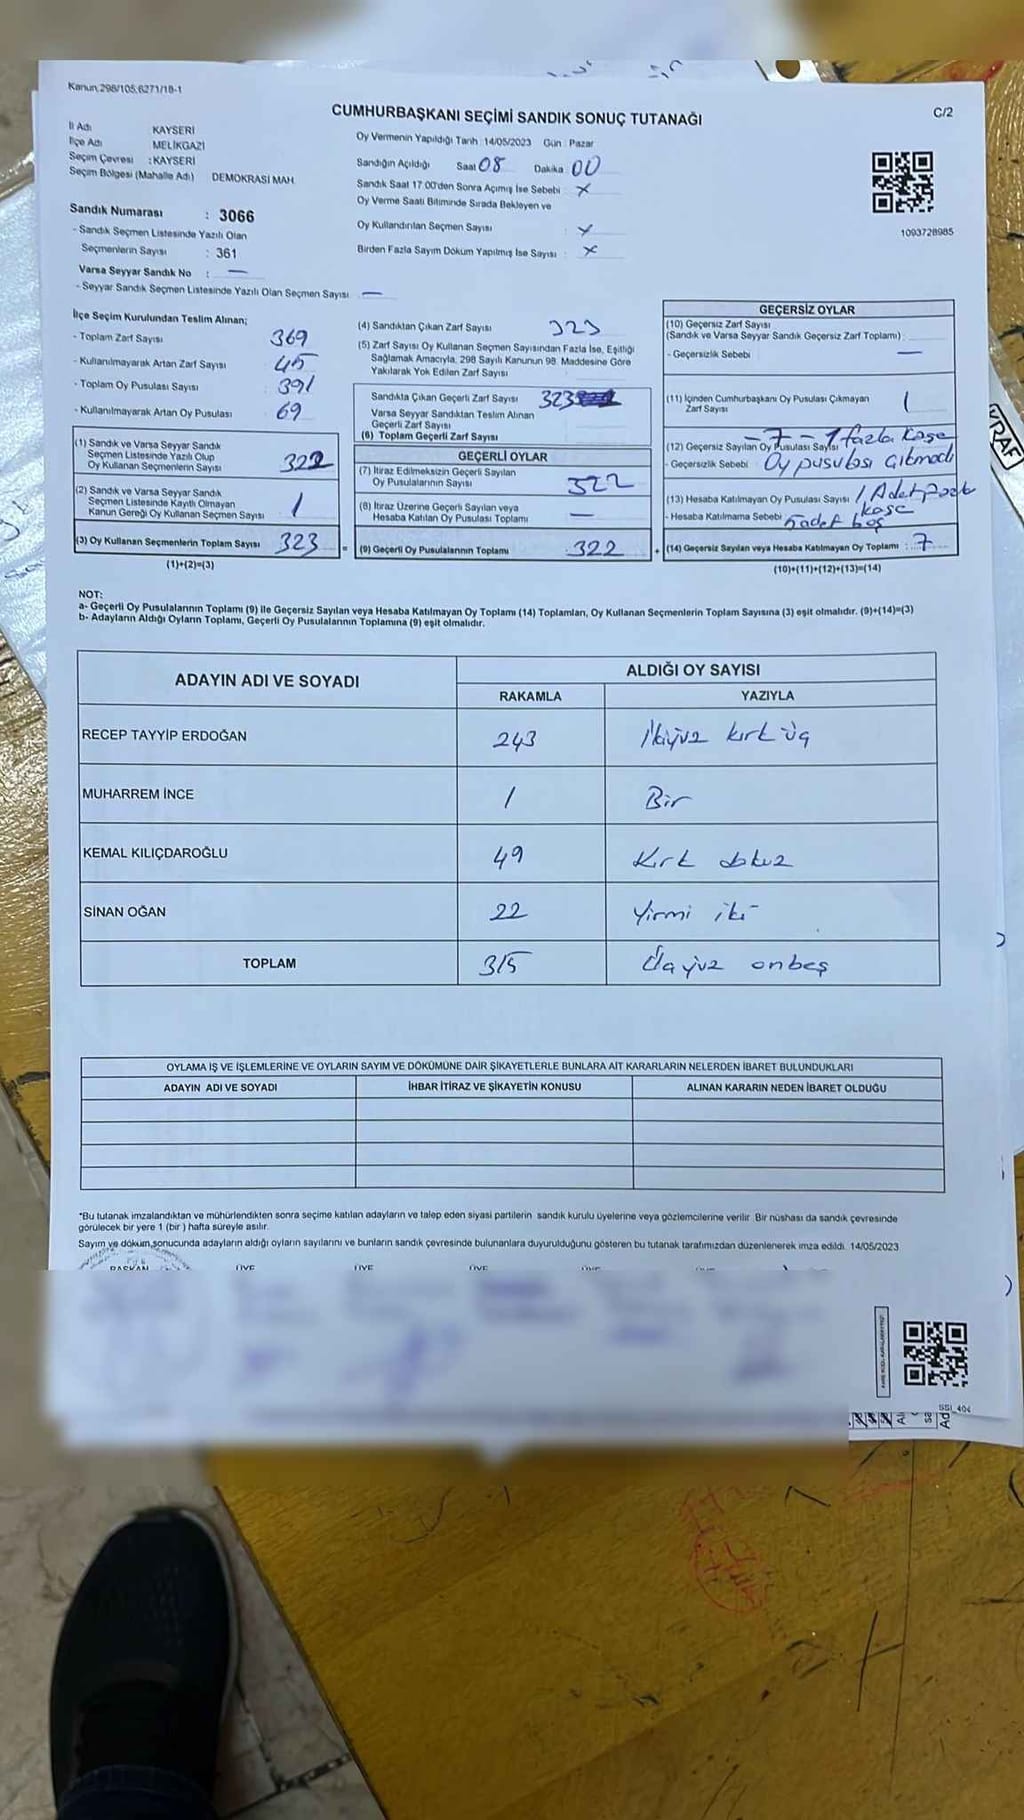 Kanun;298/105;6271/18-1
CUMHURBAŞKANI SEÇİMİ SANDIK SONUÇ TUTANAĞI
C/2
İl Adı KAYSERİ
İlçe Adı MELİKGAZİ
Seçim Çevresi : KAYSERİ
Seçim Bölgesi (Mahalle Adı) DEMOKRASİ MAH.
Sandık Numarası : 3066
- Sandık Seçmen Listesinde Yazılı Olan
Seçmenlerin Sayısı : 361
Varsa Seyyar Sandık No : —
- Seyyar Sandık Seçmen Listesinde Yazılı Olan Seçmen Sayısı —
Oy Vermenin Yapıldığı Tarih : 14/05/2023 Gün : Pazar
Sandığın Açıldığı Saat 08 Dakika 00
Sandık Saat 17:00'den Sonra Açımış İse Sebebi : x
Oy Verme Saati Bitiminde Sırada Bekleyen ve
Oy Kullandırılan Seçmen Sayısı : x
Birden Fazla Sayım Döküm Yapılmış İse Sayısı : x
1093728985
İlçe Seçim Kurulundan Teslim Alınan;
- Toplam Zarf Sayısı 369
- Kullanılmayarak Artan Zarf Sayısı 45
- Toplam Oy Pusulası Sayısı 391
- Kullanılmayarak Artan Oy Pusulası 69
(1) Sandık ve Varsa Seyyar Sandık
Seçmen Listesinde Yazılı Olup
Oy Kullanan Seçmenlerin Sayısı 322
(2) Sandık ve Varsa Seyyar Sandık
Seçmen Listesinde Kayıtlı Olmayan
Kanun Gereği Oy Kullanan Seçmen Sayısı 1
(3) Oy Kullanan Seçmenlerin Toplam Sayısı 323 =
(1)+(2)=(3)
(4) Sandıktan Çıkan Zarf Sayısı 323
(5) Zarf Sayısı Oy Kullanan Seçmen Sayısından Fazla İse, Eşitliği
Sağlamak Amacıyla, 298 Sayılı Kanunun 98. Maddesine Göre
Yakılarak Yok Edilen Zarf Sayısı :
Sandıkta Çıkan Geçerli Zarf Sayısı 323
Varsa Seyyar Sandıktan Teslim Alınan
Geçerli Zarf Sayısı
(6) Toplam Geçerli Zarf Sayısı
GEÇERLİ OYLAR
(7) İtiraz Edilmeksizin Geçerli Sayılan
Oy Pusulalarının Sayısı : 322
(8) İtiraz Üzerine Geçerli Sayılan veya
Hesaba Katılan Oy Pusulası Toplamı : —
(9) Geçerli Oy Pusulalarının Toplamı : 322 +
GEÇERSİZ OYLAR
(10) Geçersiz Zarf Sayısı
(Sandık ve Varsa Seyyar Sandık Geçersiz Zarf Toplamı) :
- Geçersizlik Sebebi : —
(11) İçinden Cumhurbaşkanı Oy Pusulası Çıkmayan
Zarf Sayısı : 1
(12) Geçersiz Sayılan Oy Pusulası Sayısı -7- 1 fazla kaşe
- Geçersizlik Sebebi : Oy pusulası çıkmadı
(13) Hesaba Katılmayan Oy Pusulası Sayısı 1 Adet
- Hesaba Katılmama Sebebi : kaşe 5 adet boş
(14) Geçersiz Sayılan veya Hesaba Katılmayan Oy Toplamı : 7
(10)+(11)+(12)+(13)=(14)
NOT:
a- Geçerli Oy Pusulalarının Toplamı (9) ile Geçersiz Sayılan veya Hesaba Katılmayan Oy Toplamı (14) Toplamları, Oy Kullanan Seçmenlerin Toplam Sayısına (3) eşit olmalıdır. (9)+(14)=(3)
b- Adayların Aldığı Oyların Toplamı, Geçerli Oy Pusulalarının Toplamına (9) eşit olmalıdır.
ADAYIN ADI VE SOYADI ALDIĞI OY SAYISI
RAKAMLA YAZIYLA
RECEP TAYYİP ERDOĞAN 243 İkiyüz kırk üç
MUHARREM İNCE 1 Bir
KEMAL KILIÇDAROĞLU 49 Kırk dokuz
SİNAN OĞAN 22 Yirmi iki
TOPLAM 315 Üçyüz onbeş
OYLAMA İŞ VE İŞLEMLERİNE VE OYLARIN SAYIM VE DÖKÜMÜNE DAİR ŞİKAYETLERLE BUNLARA AİT KARARLARIN NELERDEN İBARET BULUNDUKLARI
ADAYIN ADI VE SOYADI İHBAR İTİRAZ VE ŞİKAYETİN KONUSU ALINAN KARARIN NEDEN İBARET OLDUĞU
*Bu tutanak imzalandıktan ve mühürlendikten sonra seçime katılan adayların ve talep eden siyasi partilerin sandık kurulu üyelerine veya gözlemcilerine verilir. Bir nüshası da sandık çevresinde
görülecek bir yere 1 (bir ) hafta süreyle asılır.
Sayım ve döküm sonucunda adayların aldığı oyların sayılarını ve bunların sandık çevresinde bulunanlara duyurulduğunu gösteren bu tutanak tarafımızdan düzenlenerek imza edildi. 14/05/2023
BAŞKAN ÜYE ÜYE ÜYE ÜYE
SSİ_404